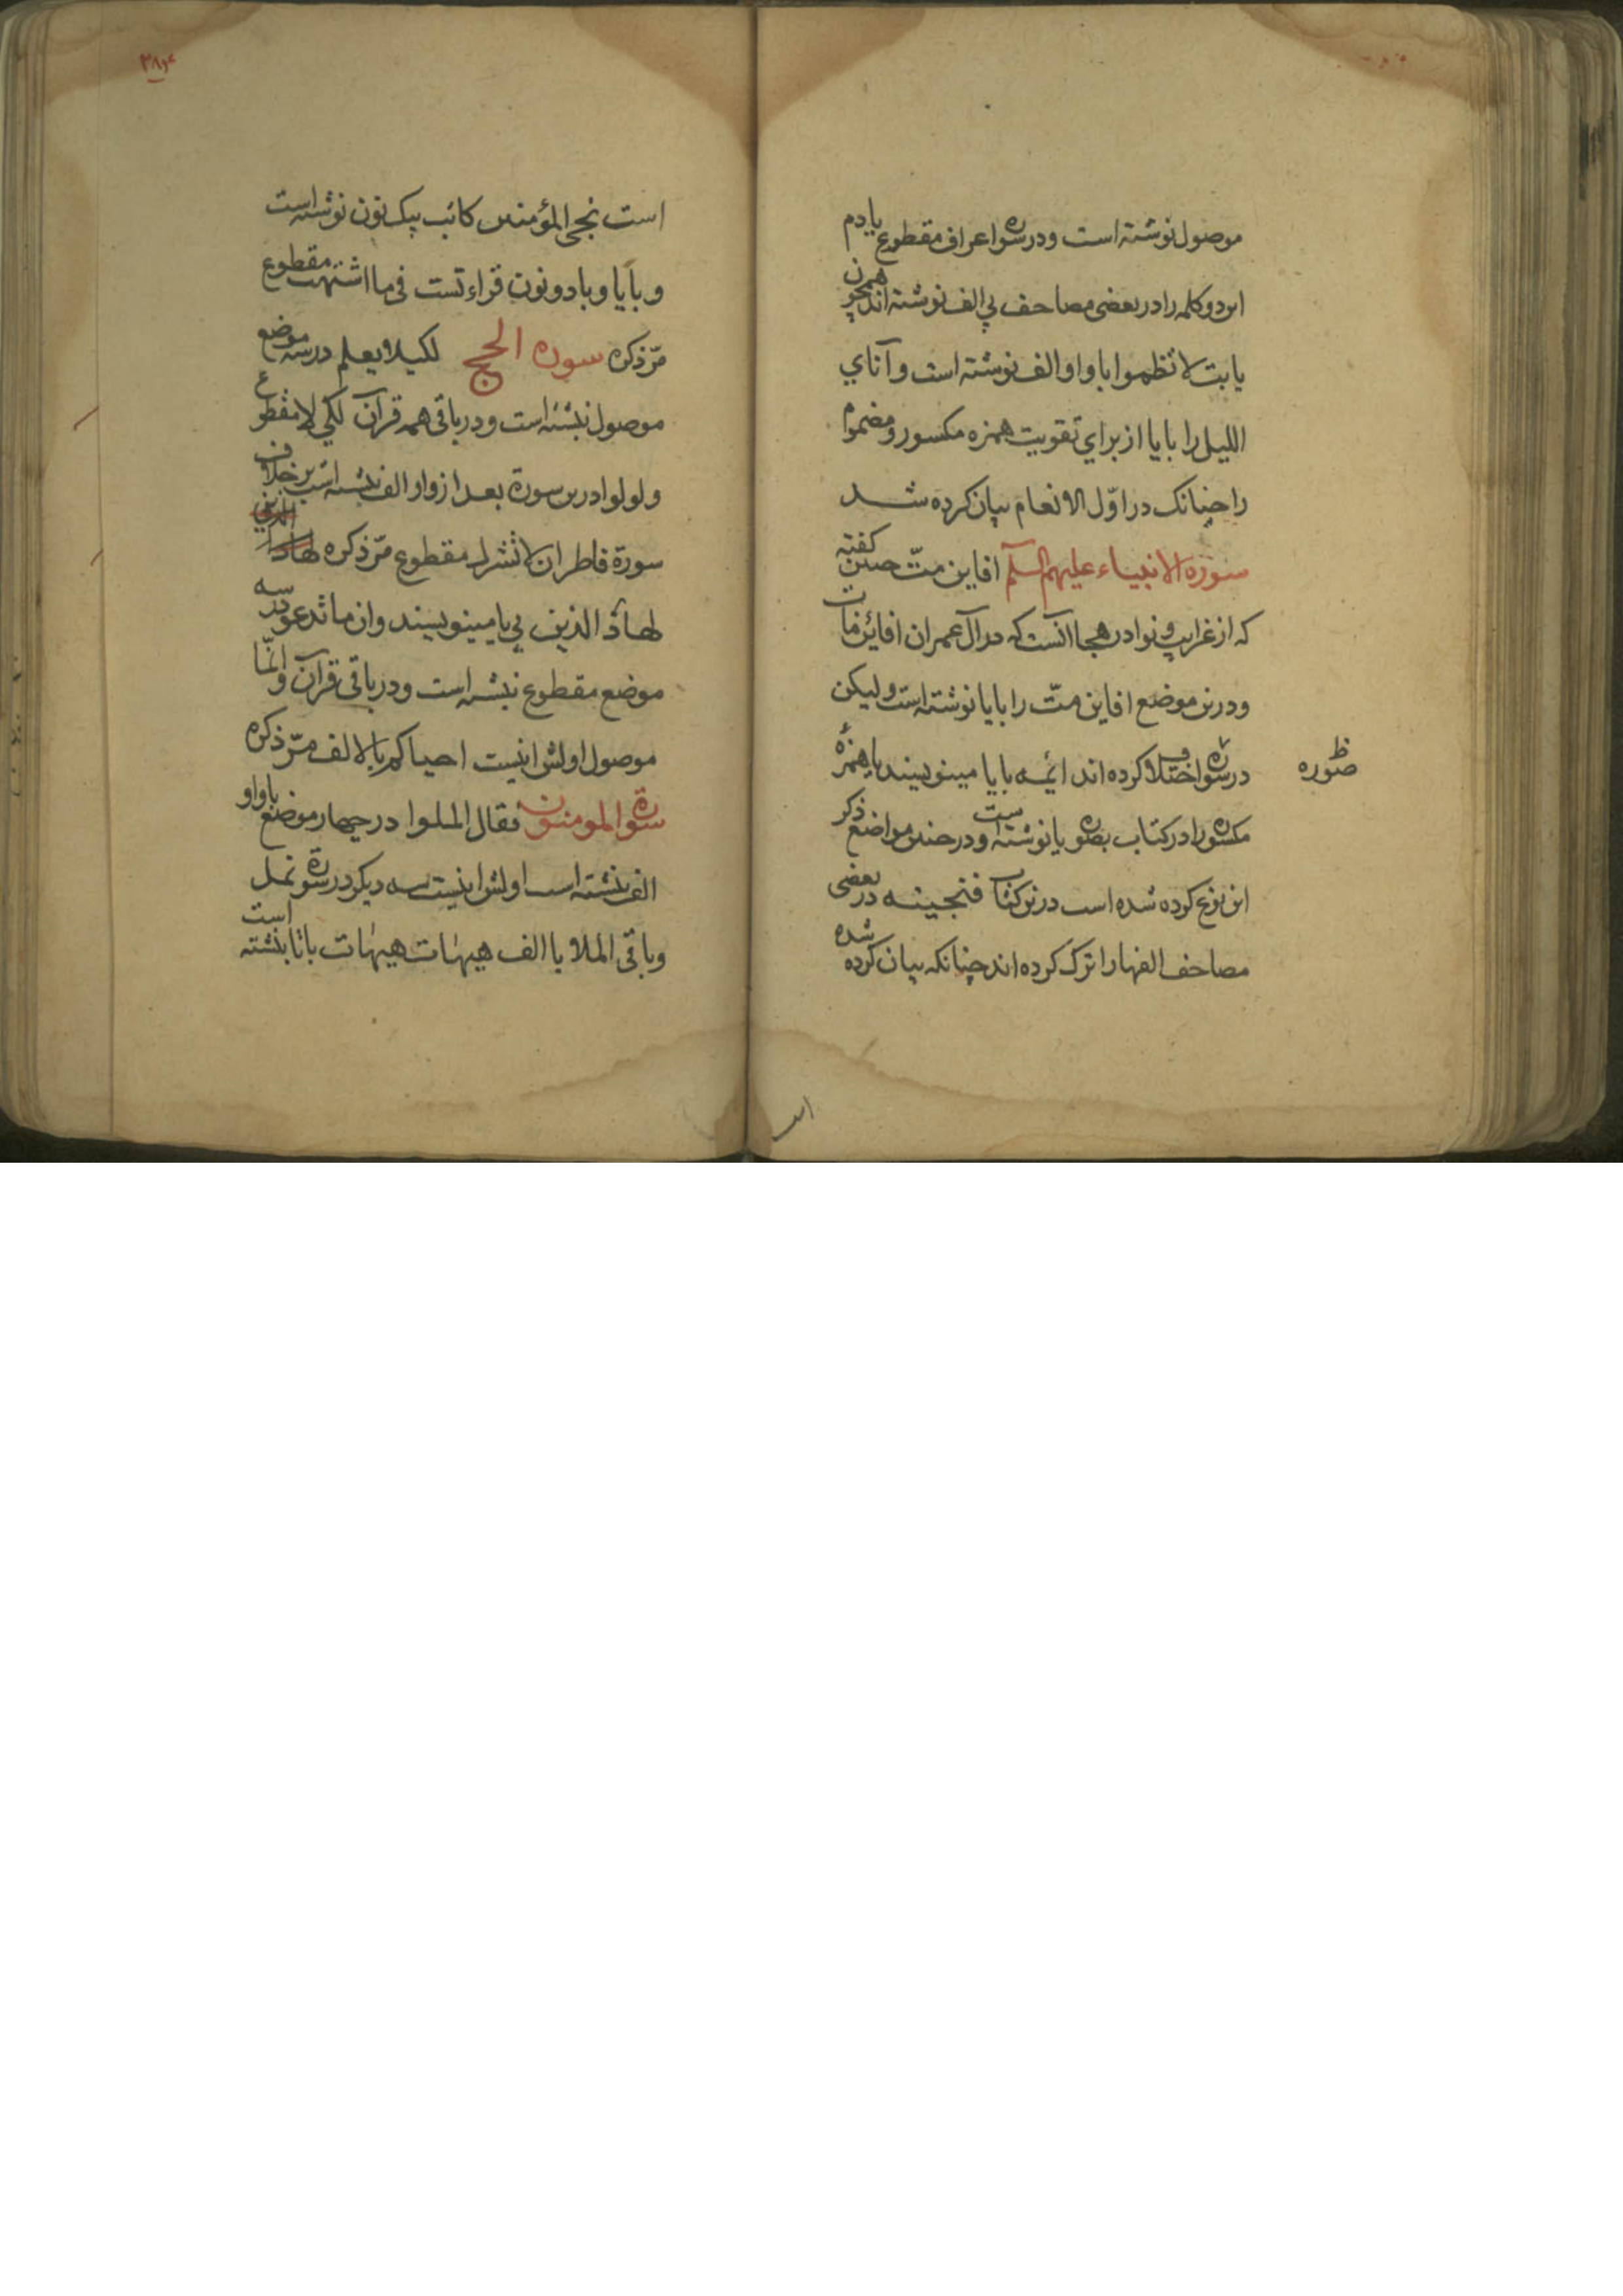 موصول نوشته است ودرسوره اعراف مقطوع یادم
این دو کلمه را در بعضی مصاحف بی الف نوشته اند همچون
یابت لا تظموا باواو الف نوشته است و آناي
الليل را بایا از برای تقویت همزه مکسور و مضموم
را چنانک در اوّل الانعام بیان کرده شد
سوره الانبیاء علیهم السلم افاین متّ گفته
که از غرایب و نوادر هجا آنست که در آل عمران افائن مات
ودرین موضع افاین متّ را بایا نوشته است ولیکن
درسوره اختلاف کرده اند ائمه بایا مینویسند یا همزهٔ
مکسوره را در کتاب بصوره یا نوشته است ودر چندین مواضع ذکر
این نوع کرده شده است درین کتاب فنجینه در بعضی
مصاحف الفها را ترک کرده اند چنانکه بیان کرده شده
صوره
است
۳۸۴
است نجی المؤمنین کاتب بیک نون نوشته است
و بایا و بادو نون قراءتست فی ما اشتهت مقطوع
مرّ ذکره سوره الحج لکیلا یعلم درسه موضع
موصول نبشته است ودر باقی همه قرآن لکی لا مقطوع
ولولوا درین سورة بعد از واو الف نبشته است برخلاف
سورة فاطر ان لا تشرک مقطوع مرّ ذکره لهاد الذین
لهاد الذین بی یا مینویسند وان ما تدعون درسه
موضع مقطوع نبشته است ودر باقی قرآن وانّما
موصول اولش اینست احیاکم بالالف مرّ ذکره
سورة المومنون فقال الملوا در چهار موضع باواو
الف نبشته است اولش اینست سه دیکر درسورة نمل
وباقی الملا باالف هیهات هیهات باتا بنشته است